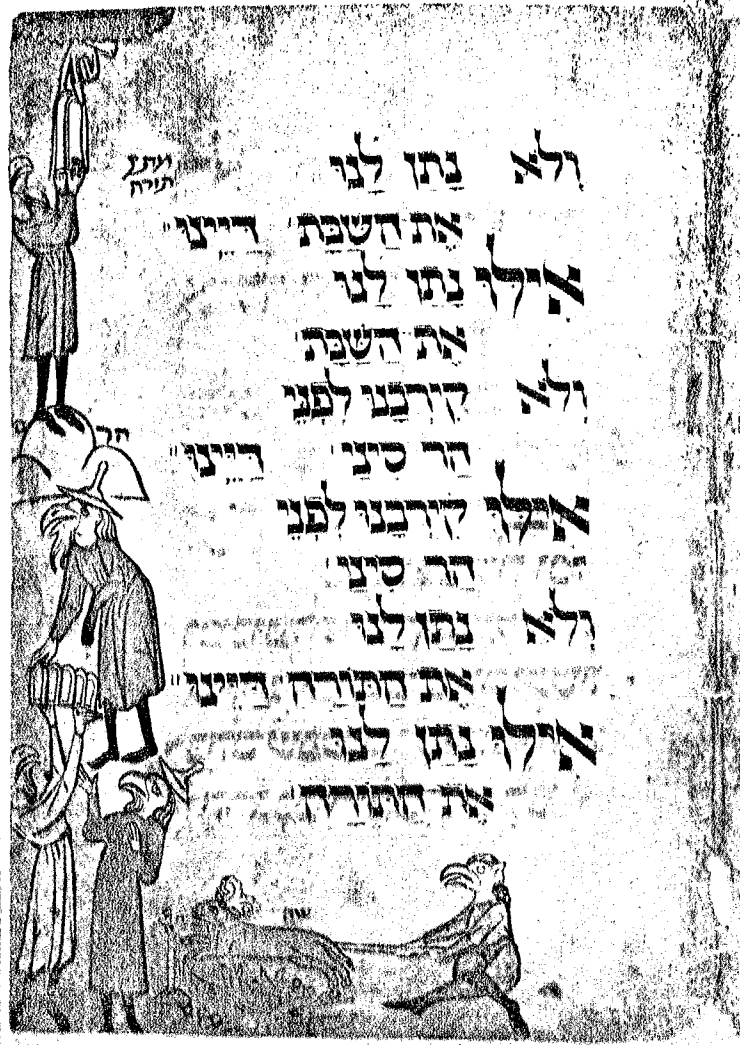 וְלֹא נָתַן לָנוּ
אֶת הַשַׁבָּת דַּיֵּינוּ
אִילּוּ נָתַן לָנוּ
אֶת הַשַּׁבָּת
וְלֹא קֵירְבָנוּ לִפְנֵי
הַר סִינַי דַּיֵּינוּ
אִילּוּ קֵירְבָנוּ לִפְנֵי
הַר סִינַי
וְלֹא נָתַן לָנוּ
אֶת הַתּוֹרָה דַּיֵּינוּ
אִילּוּ נָתַן לָנוּ
אֶת הַתּוֹרָה
מתן
תורה
הר